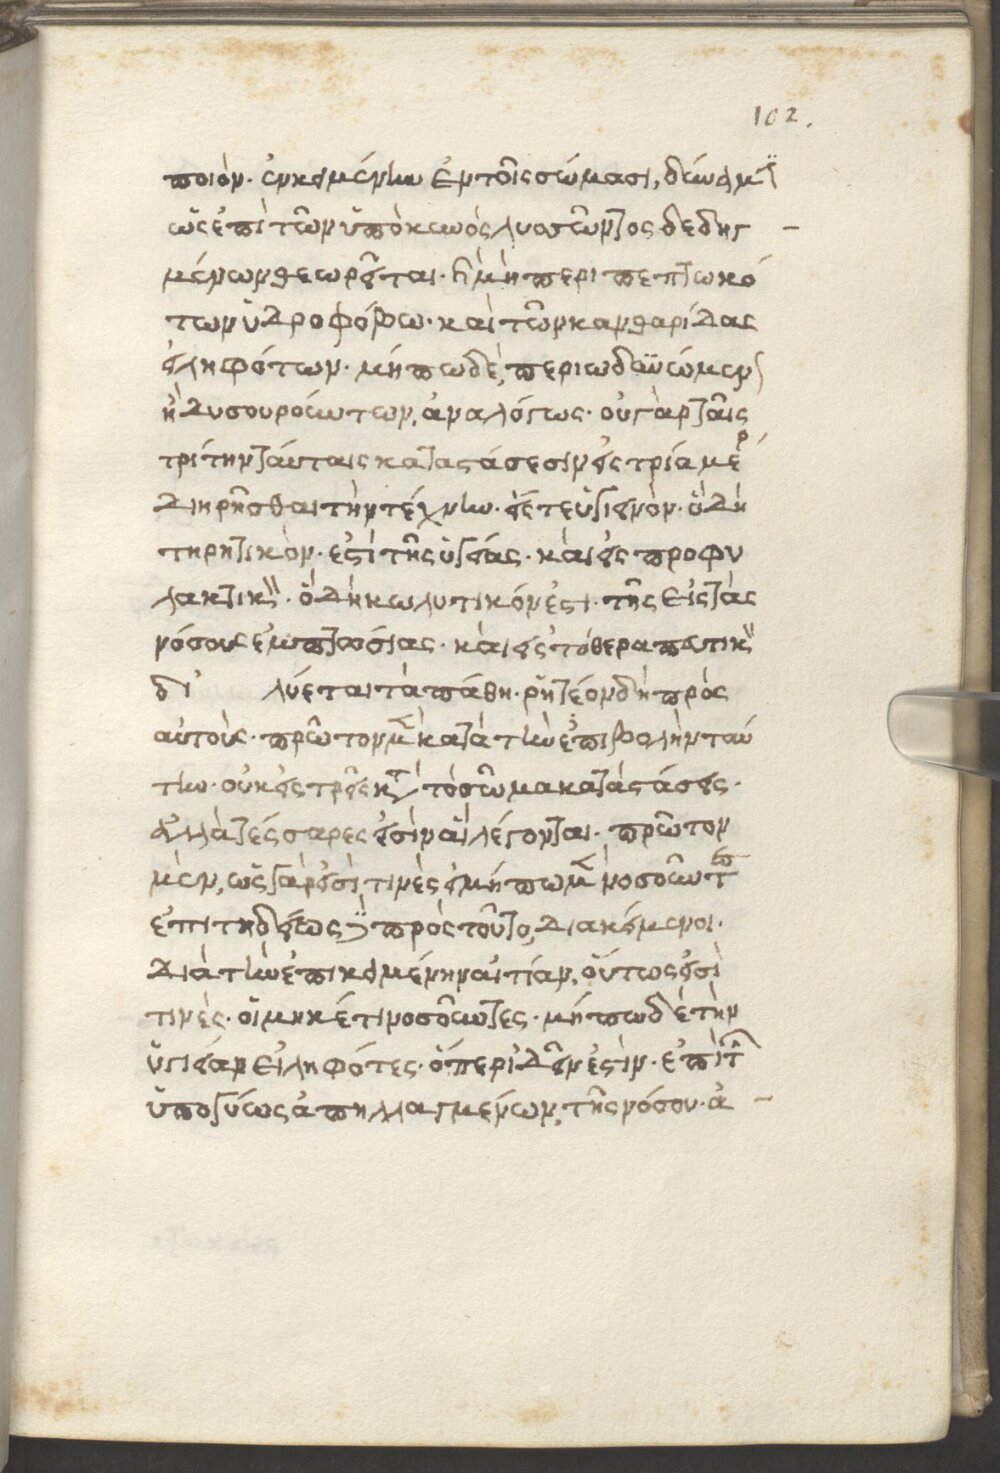 102.
ποιόν· ἐγκειμένην ἐν τοῖς σώμασι, δύναμιν
ὡς ἐπὶ τῶν ὑπὸ κυνὸς λυσσῶντος δεδηγ –
μένων θεωρεῖται· ἢ μὴ περιπεπτωκό
των ὑδροφόβω· καὶ τῶν κανθαρίδας
εἰληφότων· μήπω δὲ, περιωδευϋώμεν
ἢ δυσουρούντων, ἀναλόγως· οὐ γὰρ ταῖς
τρίτην ταύταις καταστάσεσιν εἰς τρία μέρ
διηρῆσθαι τὴν τέχνην· εἴς τε ὑγιεινόν· ὃ δὴ
τηρητικὸν· ἐστὶ τῆς ὑγείας· καὶ εἰς προφυ
λακτικὸν· ὃ δὴ κωλυτικόν ἐστι· τῆς εἰς τὰς
νόσους ἐμπτωσίας· καὶ εἰς τὸ θεραπευτικὸν
δι' λύεται τὰ πάθη· ῥητέον δὴ πρὸς
αὐτοὺς· πρῶτον μὲν κατὰ τὴν ἐπιβολὴν ταύ
την· οὐκ εἰς τρεῖς κτ τὸ σῶμα καταστάσεις·
ἀλλὰ τέσσαρες εἰσὶν αἱ λέγονται· πρῶτον
μὲν, ὡς γὰρ εἰσί τινὲς εἰ μήπω μὲν νοσοῦντες
ἐπιτηδείως πρὸς τοῦτο, διακείμενοι·
διὰ τὴν ἐπικειμένην αἰτίαν, οὕτως εἰσὶ
τινὲς· οἳ μηκέτι νοσοῦντες· μήπω δὲ τὴν
ὑγείαν εἰληφότες· ὅπερ ἰδεῖν ἐστὶν· ἐπὶ τῶν
ὑπογύως ἀπηλλαγμένων, τῆς νόσου· ἀ –